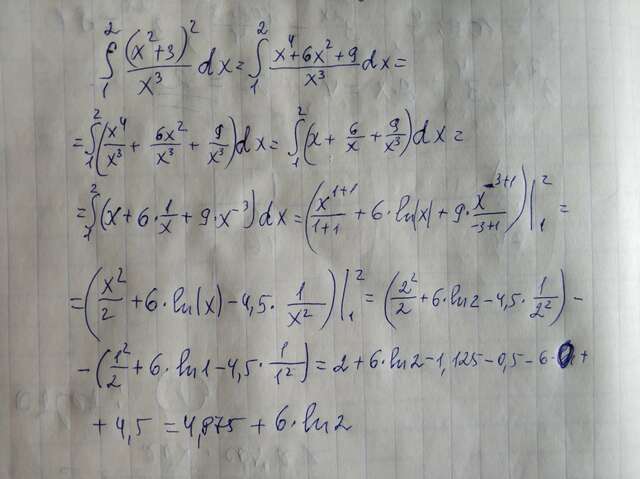 ∫₁² (x²+3)²/x³ dx = ∫₁² (x⁴+6x²+9)/x³ dx =
= ∫₁² (x⁴/x³ + 6x²/x³ + 9/x³) dx = ∫₁² (x + 6/x + 9/x³) dx =
= ∫₁² (x + 6·1/x + 9·x⁻³) dx = (x¹⁺¹/1+1 + 6·ln|x| + 9·x⁻³⁺¹/-3+1) |₁² =
= (x²/2 + 6·ln(x) - 4,5·1/x²) |₁² = (2²/2 + 6·ln2 - 4,5·1/2²) -
- (1²/2 + 6·ln1 - 4,5·1/1²) = 2 + 6·ln2 - 1,125 - 0,5 - 6·0 +
+ 4,5 = 4,875 + 6·ln2